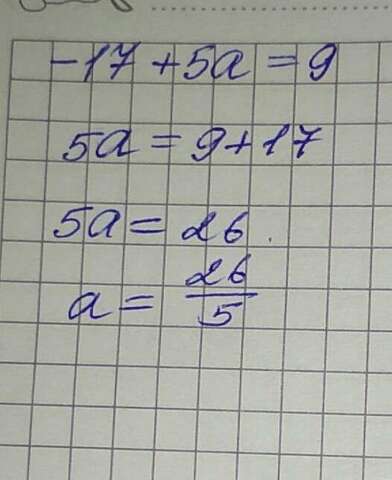 -17 + 5a = 9
5a = 9 + 17
5a = 26.
a = 26/5